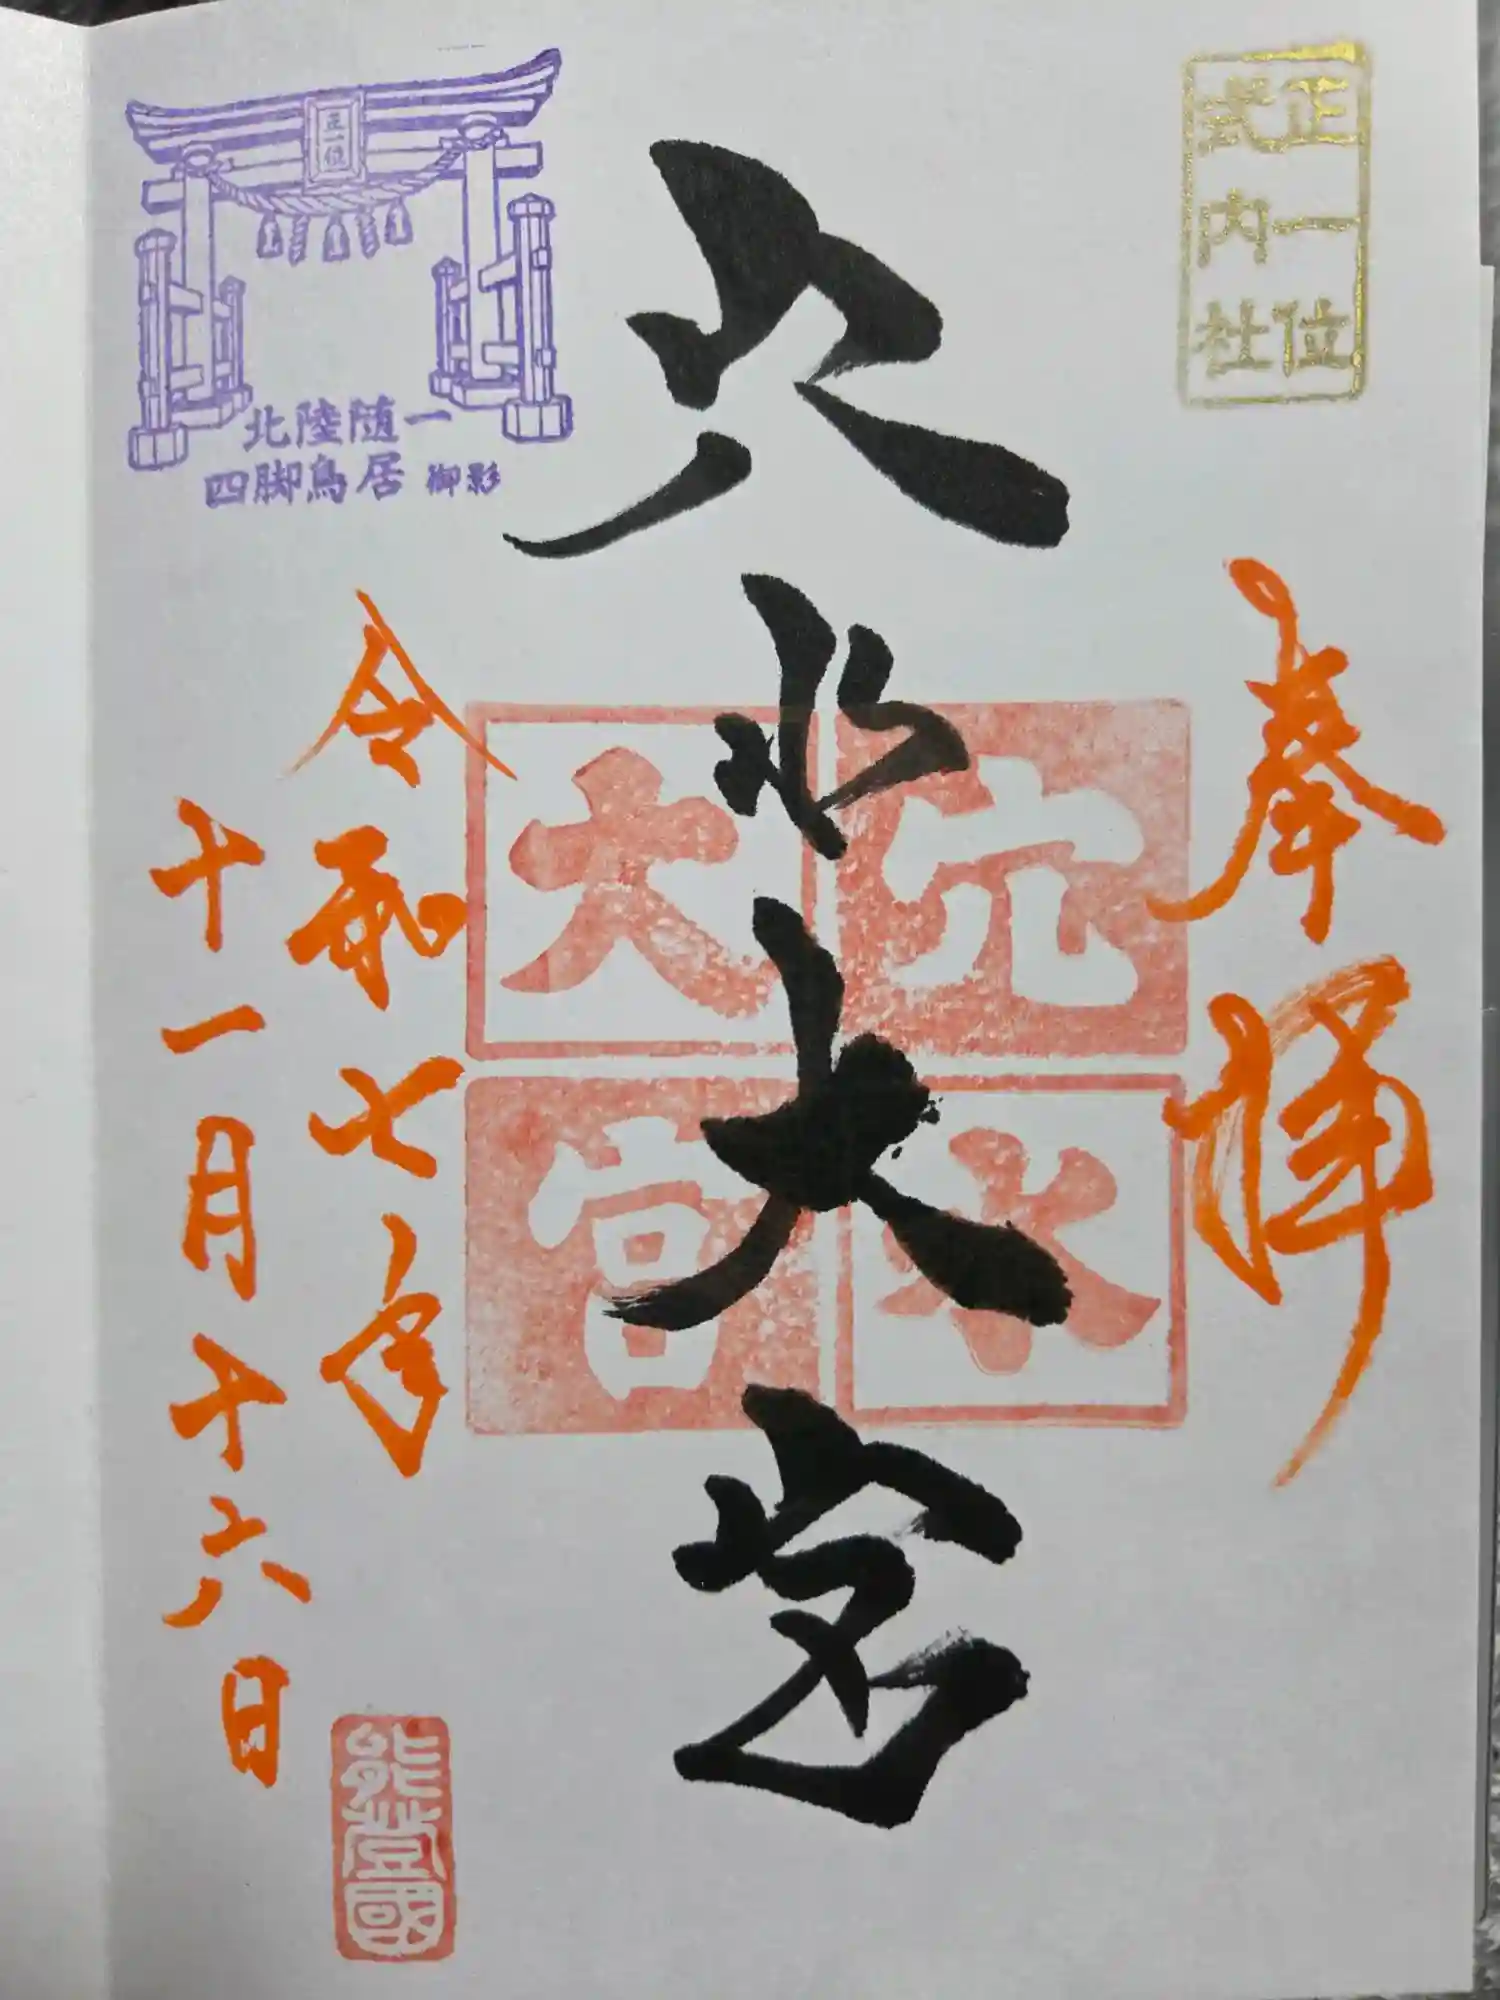 正一位
式内社
奉拝
穴水大宮
穴水大宮
令和七年
十一月十六日
能登國
正一位
北陸随一
四脚鳥居 御影